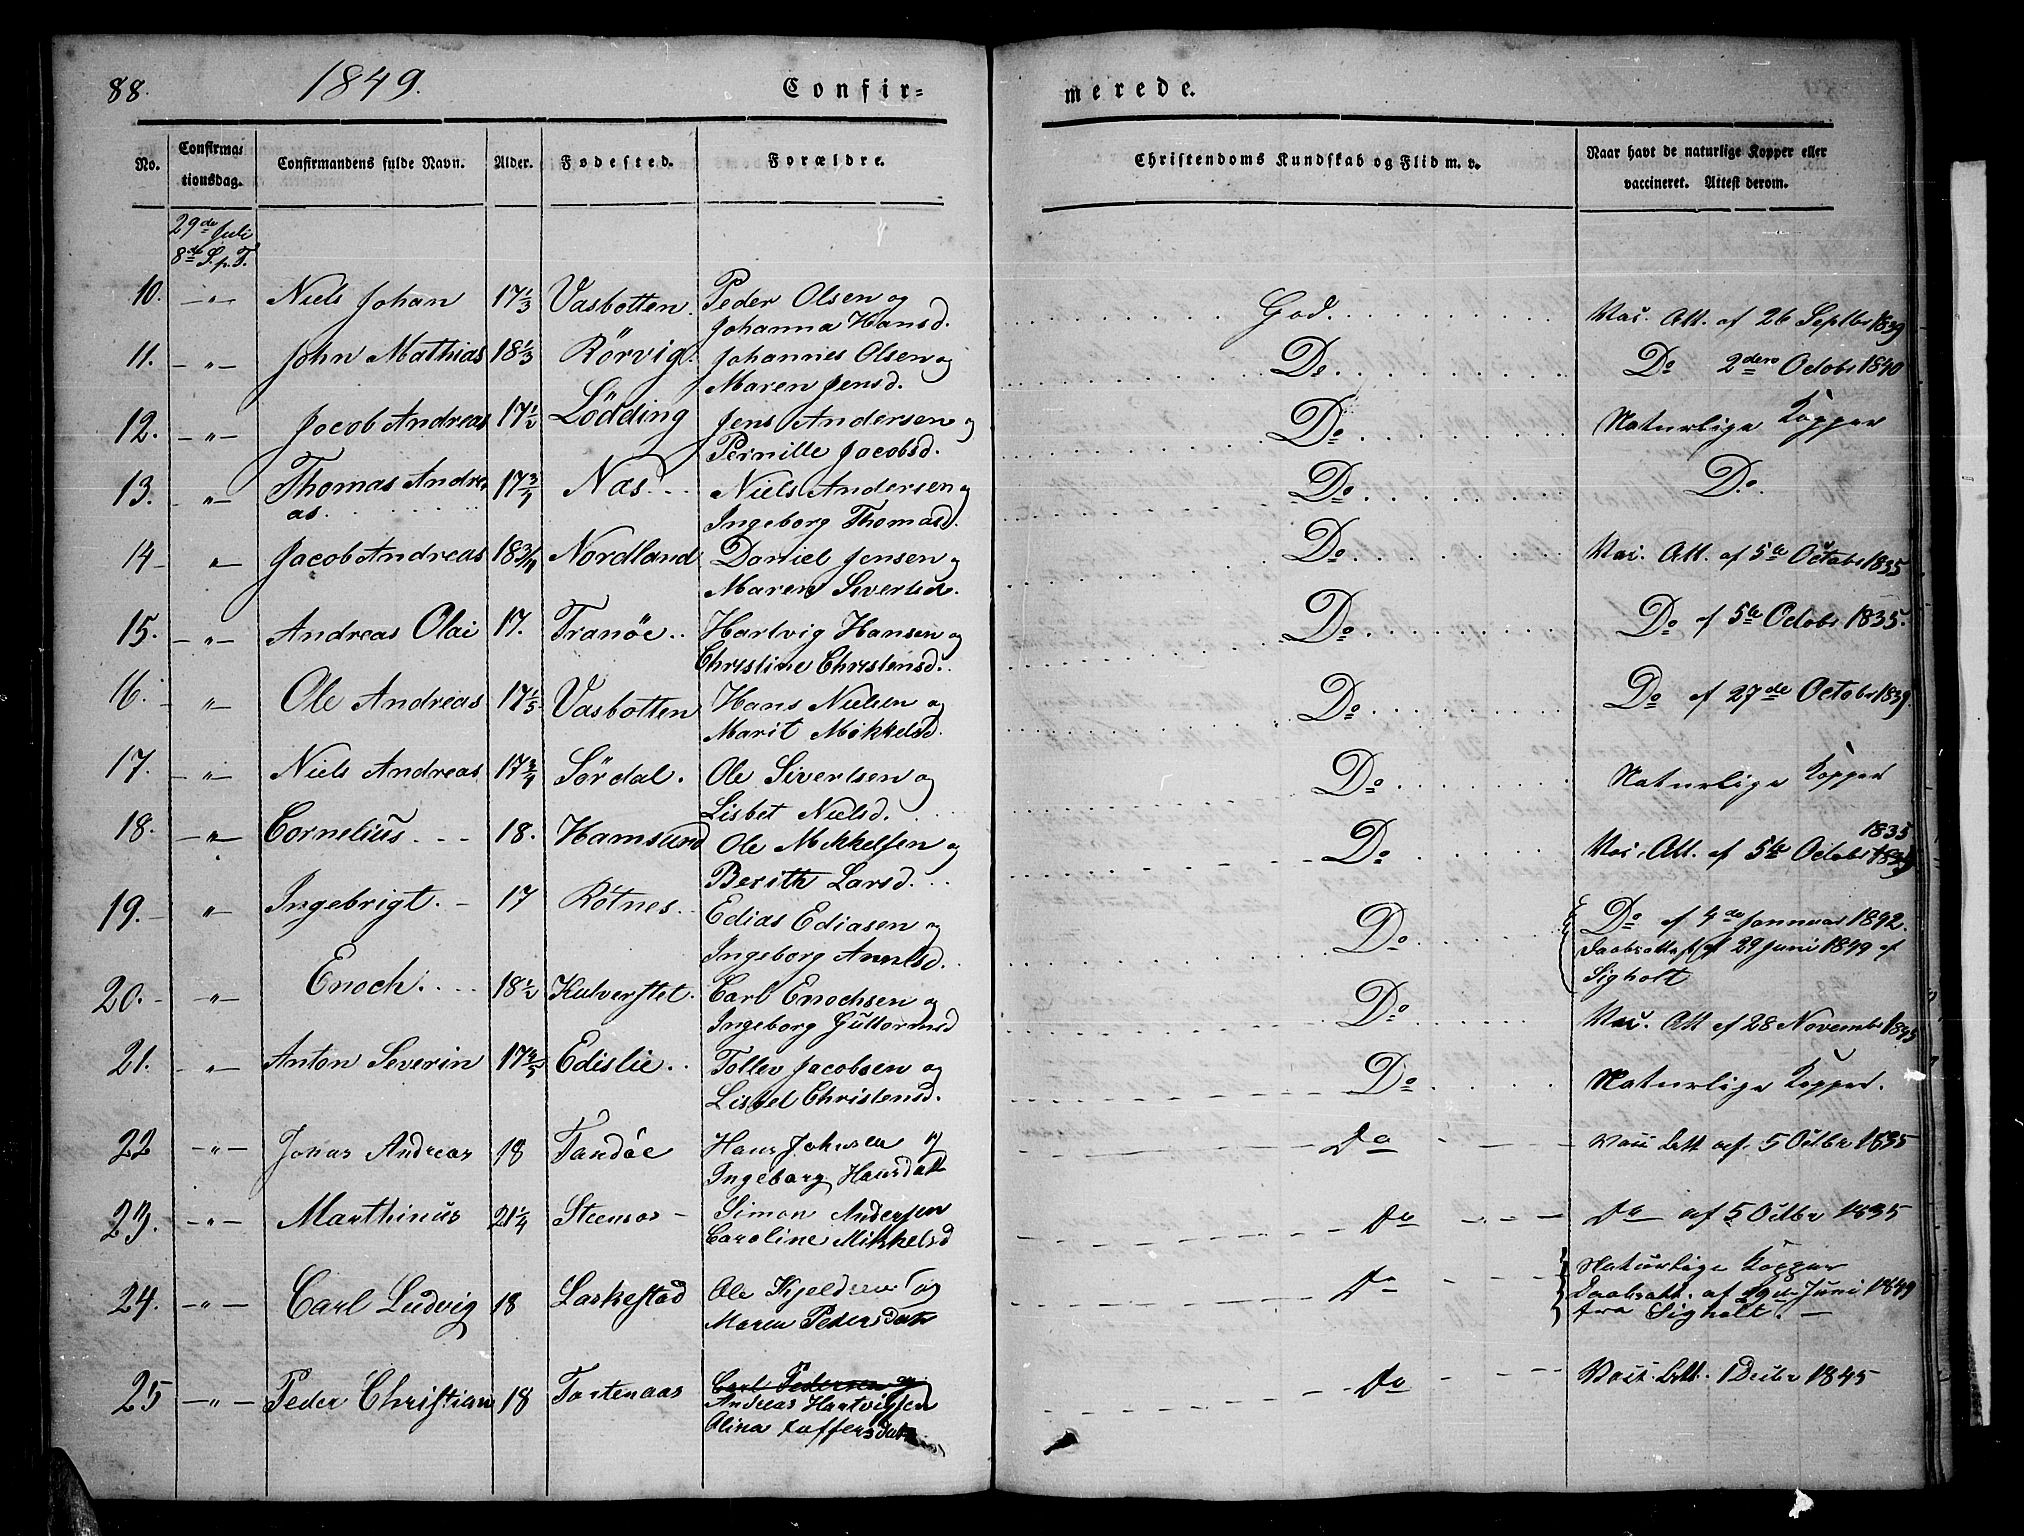 88. 1849. Confir-
merede.
No. Confirmationsdag. Confirmandens fulde Navn. Alder. Fodested. Forældre. Christendoms Kundskab og Flid m. v. Naar havt de naturlige Kopper eller vaccineret. Attest derom.
29de Juli
8de S.p.T.
10. -"- Niels Johan 17 1/3 Vasbotten. Peder Olsen og God. Vac. Att. af 26 Septbr 1839
Johanna Hansd.
11. -"- John Mathias 18 1/3 Rörvig. Johannes Olsen og Do. Do 2den Octobr 1840
Maren Jensd.
12. -"- Jacob Andreas 17 1/2 Lödding Jens Andersen og Do Naturlige Kopper
Pernille Jacobsd.
13. " Thomas Andre 17 3/4 Nas. Niels Andersen og Do Do.
as. Ingeborg Thomasd.
14 " Jacob Andreas 18 3/4 Nordland Daniel Jensen og Do Vac. Att. af 5te Octobr 1835
Maren Sivertsd.
15. -"- Andreas Olai 17. Tranöe. Hartvig Hansen og Do Do af 5te Octobr 1835.
Christine Christensd.
16. -"- Ole Andreas 17 1/5 Vasbotten Hans Nielsen og Do Do af 27de Octobr 1839
Marit Mikkelsd.
17. -"- Niels Andreas 17 3/4 Sördal. Ole Sivertsen og Do Naturlige Kopper
Lisbet Nielsd.
18. -"- Cornelius. 18. Hamsund Ole Mikkelsen og Do Vac. Att. af 5te Octobr 1835
Berith Larsd.
19. " Ingebrigt. 17 Rötnes. Edias Ediasen og Do Do af 4de Januar 1842.
Ingeborg Daabsattest af 29 Juni 1849 af
Sigholt
20. " Enoch. 18 1/2 Kulverstet. Carl Enochsen og Do
Ingeborg Guttormsd Vac. Att af 28 Novembr
21. -"- Anton Severin Edislie. Tollev Jacobsen og Do Naturlige Kopper.
Lisbet Christensd.
22 -"- Jonas Andreas 18 Tandöe Hans Johnsen og Do Att af. 5 Octbr 1835
Ingeborg Hansdatr
23. -"- Marthinus 21 1/4 Steensos Simon Andersen Do Do af 5 Octbr 1835
Caroline Mikkelsd
24. -"- Carl Ludvig 18 Laskestad Ole Kjeldsen og Do Naturlige Kopper
Maren Pedersdatr Daabsatt. af 29de Juni 1849
fra Sigholt.
25 -"- Peder Christian 18 Tortenaas Carl Pedersen og Do Att. 1 Decbr 1845
Andreas Hartvigsen
Olina